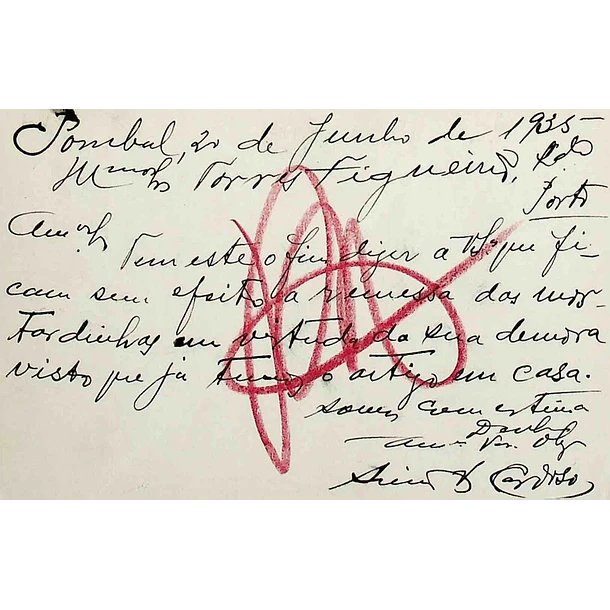 Pombal, 20 de Junho de 1935
Torres Figueirêdo, L.da
Porto
Am.os
Tem este o fim dizer a V. S.as que fi-
cam sem efeito a remessa das mos-
tardinhas em virtude da sua demora
visto que já temos o artigo em casa.
somos com estima
Cardoso